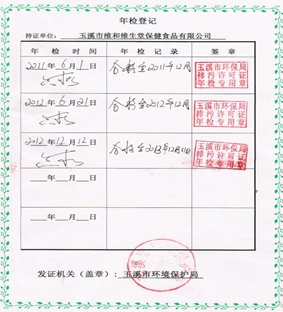 年检登记
持证单位： 玉溪市维和维生堂保健食品有限公司
年 检 时 间 年 检 记 录 签 章
2011年6月1日 合格至2011年12月 玉溪市环保局
排污许可证
年检专用章
2012年6月21日 合格至2012年12月 玉溪市环保局
排污许可证
年检专用章
2012年12月12日 合格至2013年12月 玉溪市环保局
排污许可证
年检专用章
年 月 日
年 月 日
发证机关（盖章）： 玉溪市环境保护局